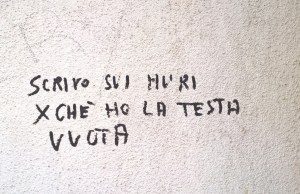 SCRIVO SUI MURI
XCHÈ HO LA TESTA
VUOTA